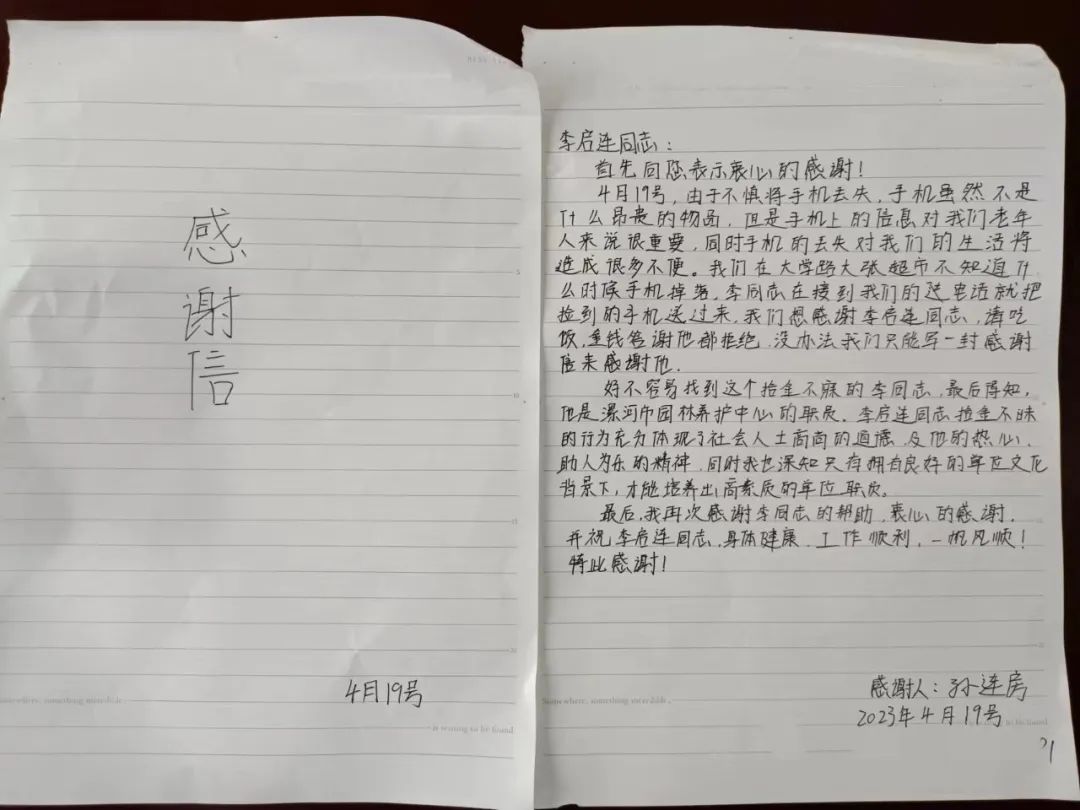 感
谢
信
4月19号
Somewhere, something incredible
is waiting to be found
李启连同志：
首先向您表示衷心的感谢！
4月19号，由于不慎将手机丢失，手机虽然不是
什么昂贵的物品，但是手机上的信息对我们老年
人来说很重要，同时手机的丢失对我们的生活将
造成很多不便。我们在大学路大张超市不知道什
么时候手机掉落，李同志在接到我们的电话就把
捡到的手机送过来，我们想感谢李启连同志，请吃
饭，金钱答谢他都拒绝，没办法我们只能写一封感谢
信来感谢他.
好不容易找到这个拾金不昧的李同志，最后得知，
他是漯河市园林养护中心的职员、李启连同志拾金不昧
的行为充分体现了社会人士高尚的道德，及他的热心，
助人为乐的精神，同时我也深知只有拥有良好的单位文化
背景下，才能培养出高素质的单位职员。
最后，我再次感谢李同志的帮助，衷心的感谢，
并祝李启连同志，身体健康、工作顺利，一帆风顺！
特此感谢！
感谢人：孙连房
2023年4月19号
Somewhere, something incredible
to be found
21